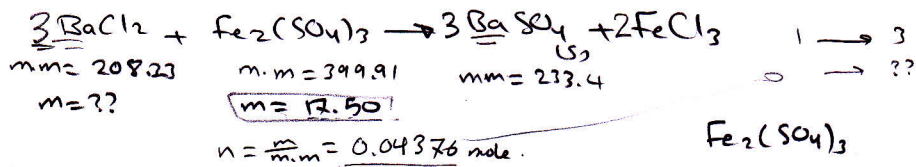 3BaCl2 + Fe2(SO4)3 → 3BaSO4(s) + 2FeCl3
1 → 3
m.m = 208.23 m.m = 399.91 mm = 233.4
0 → ??
m = ?? m = 17.50
Fe2(SO4)3
n = m/m.m = 0.04376 mole.